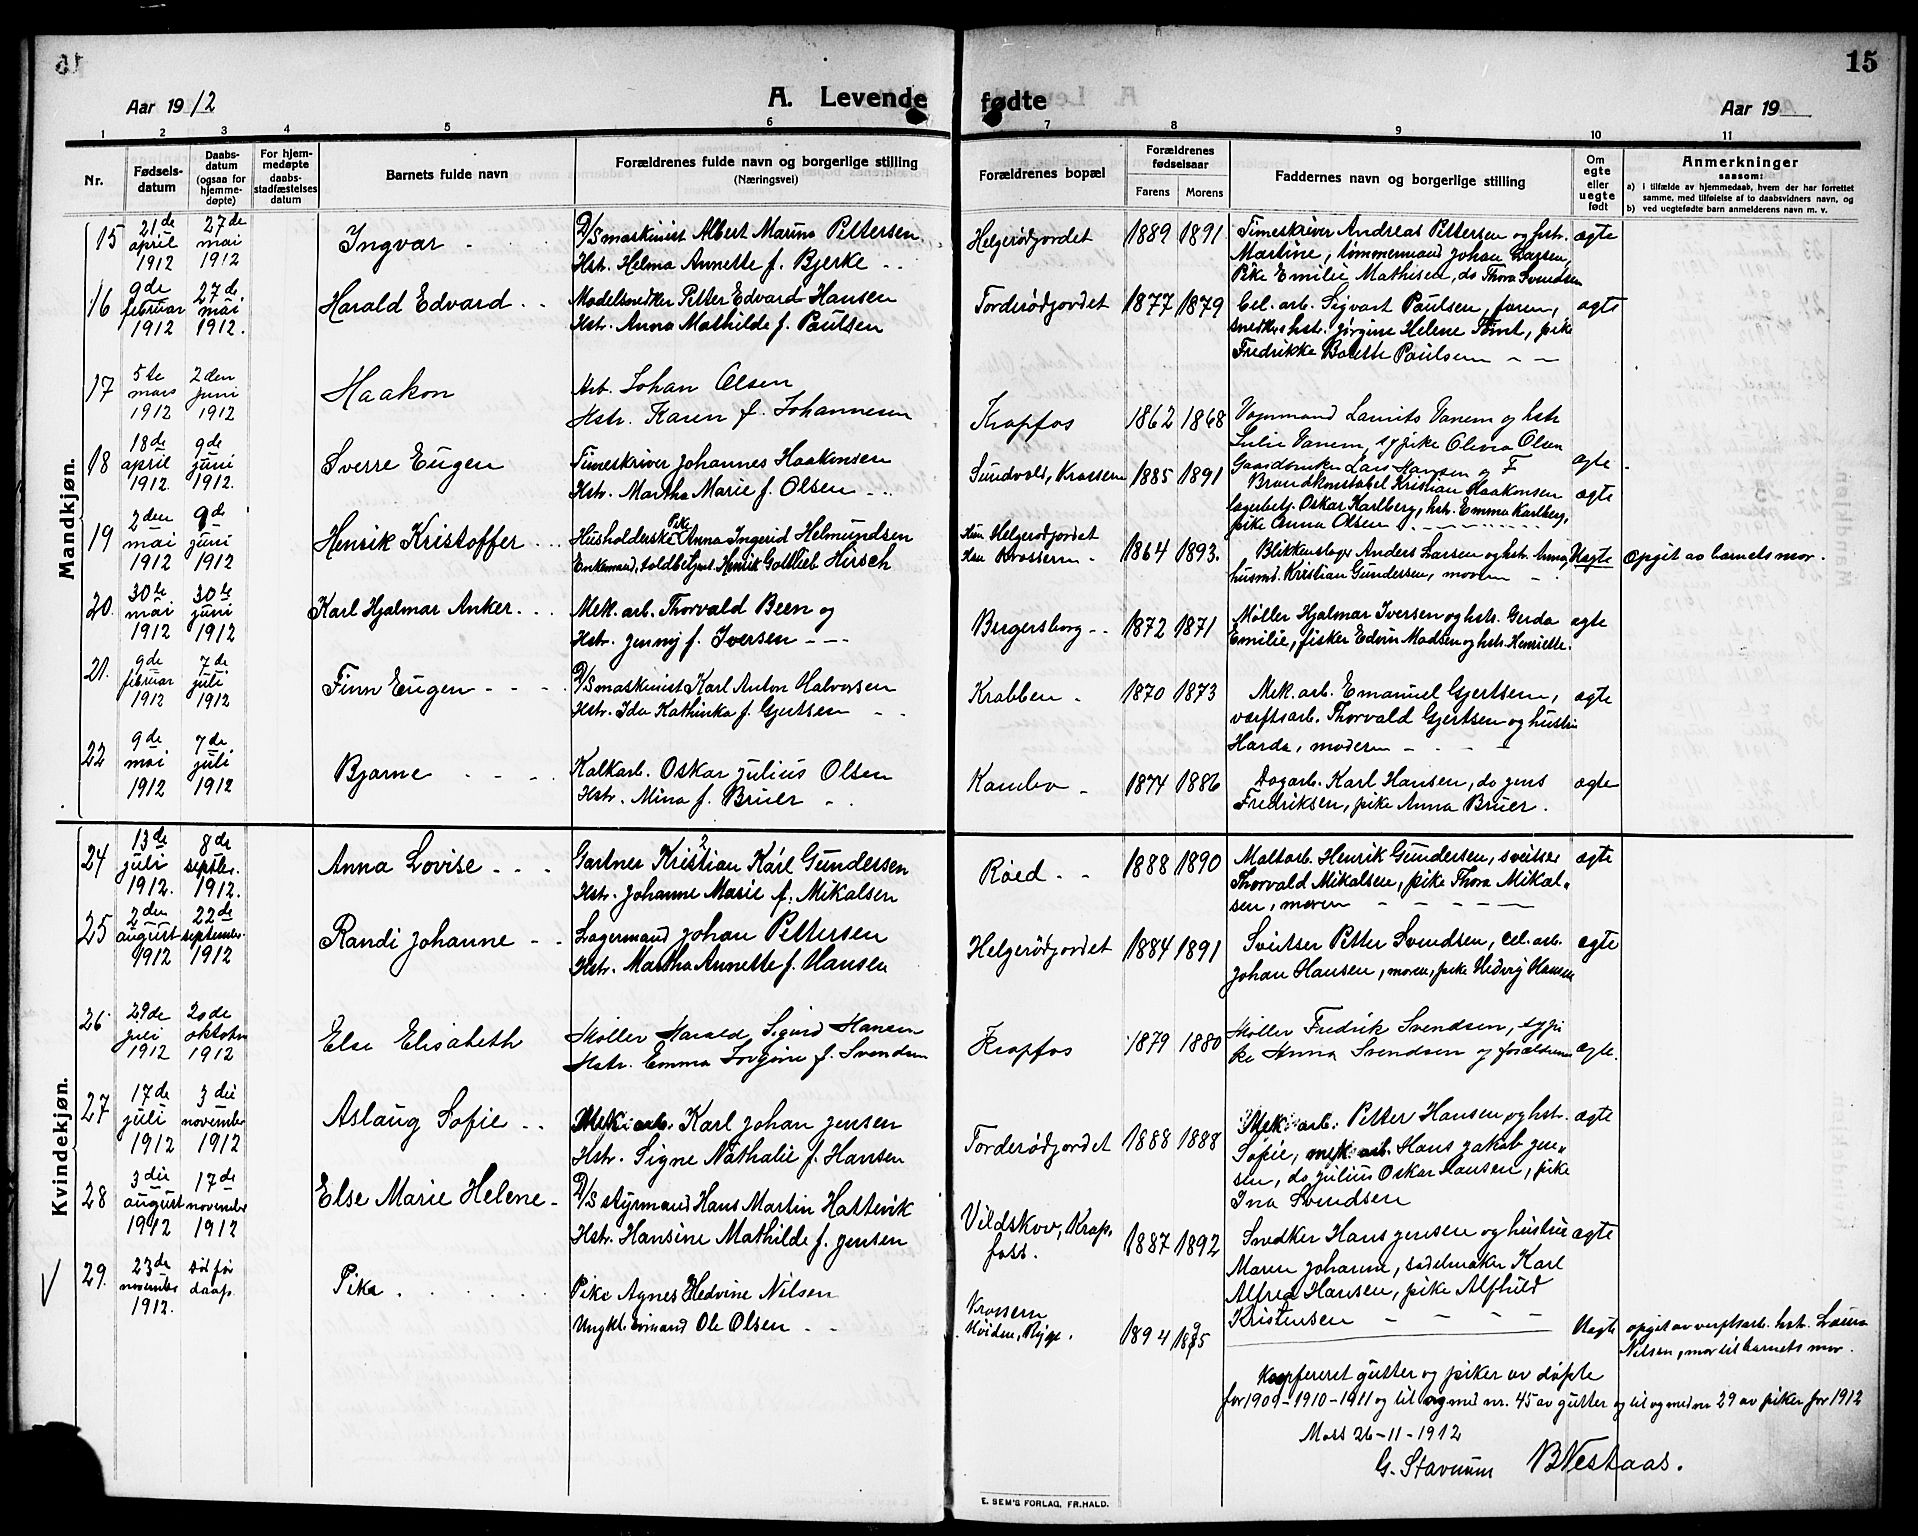 15
Aar 1912
A. Levende fødte
Aar 19
1 2 3 4 5 6 7 8 9 10 11
Nr.
Fødsels-
datum
Daabs-
datum
(ogsaa for
hjemme-
døpte)
For hjem-
medøpte
daabs-
stadfæstelses
datum
Barnets fulde navn
Forældrenes fulde navn og borgerlige stilling
(Næringsvei)
Forældrenes bopæl
Forældrenes
fødselsaar
Farens Morens
Faddernes navn og borgerlige stilling
Om
egte
eller
uegte
født
Anmerkninger
saasom:
a) i tilfælde av hjemmedaab, hvem der har forrettet
samme, med tilføielse af to daabsvidners navn, og
b) ved uegtefødte barn anmelderens navn m. v.
Mandkjøn.
15 21de april 1912 27de mai 1912 Ingvar
D/S maskinist Albert Marius Pettersen
Hst. Helma Annette f. Bjerke
Helgerødjordet 1889 1891
Timeskriver Andreas Pettersen og hst.
Martine, tømmermand Johan Larsen,
Pike Emilie Mathisen, do Thora Svendsen
ægte
16 9de februar 1912 27de mai 1912. Harald Edvard
Modelsnedker Petter Edvard Hansen
Hst. Anna Mathilde f. Paulsen
Torderødjordet 1877 1879
Cel. arb. Sigvart Paulsen, faren,
snedkers hst. Jørgine Helene Tømt, pike
Fredrikke Bolette Paulsen
ægte
17 5te mars 1912 2den juni 1912 Haakon
Arb. Johan Olsen
Hstr. Karen f. Johannesen
Krapfos 1862 1868
Vognmand Laurits Vanem og hstr
Julie Vanem, sypike Olivia Olsen
Gaardbruker Lars Hansen og F
ægte.
18 18de april 1912. 9de juni 1912. Sverre Eugen
Timeskriver Johannes Haakonsen
Hst. Martha Marie f. Olsen
Sundvold, Krossern 1885 1891
Brandkonstabel Kristian Haakonsen
lagerbetj. Oskar Karlberg, hst. Emma Karlberg,
pike Anna Olsen
ægte
19 2den mai 1912 9de juni 1912 Henrik Kristoffer
Husholderske Pike Anna Ingerid Helmundsen
Enkemand, toldbetjent Henrik Gottlieb Hirsch
Hun Helgerødjordet
Han Krossern 1864 1893.
Blikkenslager Anders Larsen og hst. Anna,
husmd. Kristian Gundersen, moren
Uægte
Opgit av barnets mor.
20. 30te mai 1912 30te juni 1912 Karl Hjalmar Anker
Mek. arb. Thorvald Been og
Hst. Jenny f. Iversen
Bergersborg 1872 1871
Møller Hjalmar Iversen og hst. Gerda
Emilie, fisker Edvin Madsen og hst. Henriette.
ægte
21. 9de februar 1912 7de juli 1912 Finn Eugen
D/S maskinist Karl Anton Halvorsen
Hst. Ida Kathinka f. Gjertsen
Krabben 1870 1873
Mek. arb. Emanuel Gjertsen,
værftsarb. Thorvald Gjertsen og hustru
Harda, moderen
ægte
22 9de mai 1912 7de juli 1912 Bjarne
Kalkarb. Oskar Julius Olsen
Hst. Mina f. Bruer
Kambo 1874 1886
Dagarb. Karl Hansen, do Jens
Fredriksen, pike Anna Bruer.
ægte
Kvindekjøn.
24 13de juli 1912. 8de septbr. 1912. Anna Lovise
Gartner Kristian Karl Gundersen
Hst. Johanne Marie f. Mikalsen
Røed 1888 1890
Maltarb. Henrik Gundersen, sveitser
Thorvald Mikalsen, pike Thora Mikal-
sen, moren
ægte
25 2den august 1912 22de september 1912 Randi Johanne
Lagermand Johan Pettersen
Hst. Martha Annette f. Hansen
Helgerødjordet 1884 1891
Sveitser Petter Svendsen, cel. arb.
Johan Hansen, moren, pike Hedvig Hansen
ægte
26 29de juli 1912 20de oktober 1912 Else Elisabeth
Møller Harald Sigurd Hansen
Hstr. Emma Jørgine f. Svendsen
Krapfos 1879 1880
Møller Fredrik Svendsen, sypi
ke Anna Svendsen og forældrene
ægte.
27 17de juli 1912 3die november 1912 Aslaug Sofie
Mek. arb. Karl Johan Jensen
Hst. Signe Nathalie f. Hansen
Torderødjordet 1888 1888
Mek. arb. Petter Hansen og hst.
Sofie, mek. arb. Hans Jakob Jen-
sen, do Julius Oskar Hansen, pike
Ina Svendsen
ægte
28 3die august 1912 17de november 1912 Else Marie Helene
D/S styrmand Hans Martin Hattevik
Hst. Hansine Mathilde f. Jensen
Vildskov, Krap-
foss. 1887 1892
Snedker Hans Jensen og hustru
Maren Johanne, sadelmaker Karl
Alfred Hansen, pike Alfhild
Kristensen
ægte
29. 23de november 1912. død før daap. Pike
Pike Agnes Hedvine Nilsen
Ungkl. sømand Ole Olsen
Krossern
Hviden, Rygge. 1894 1895
Uægte
opgit av verftsarb. hst. Laura
Nilsen, mor til barnets mor.
Konfereret gutter og piker av døpte
for 1909-1910-1911 og til og med nr. 45 av gutter og til og med nr 29 av piker for 1912
Moss 26-11-1912
G. Stavnum B Nestaas.
E. SEM'S FORLAG, FR.HALD.